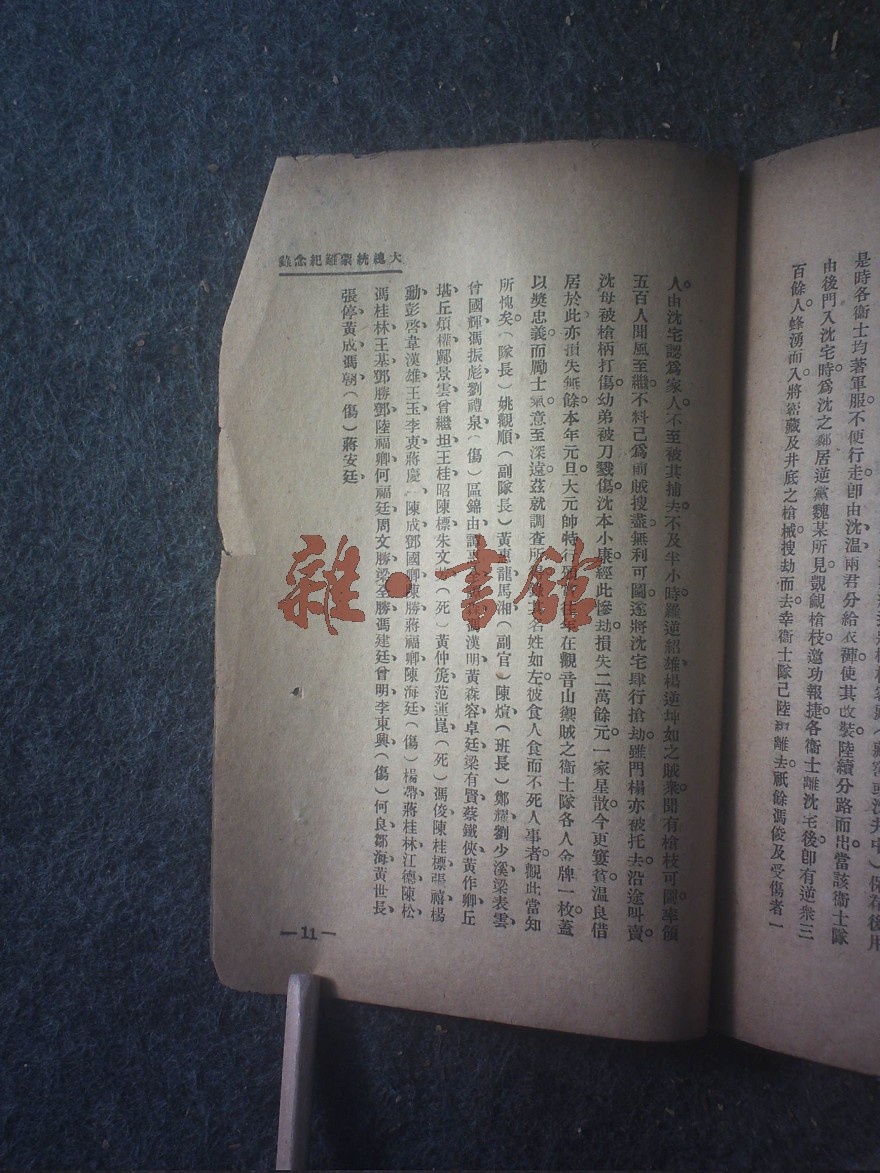 是時各衞士均著軍服不便行走卽由沈溫兩君分給衣褲使其改裝陸續分路而出。當該衞士隊
由後門入沈宅時爲沈之鄰居逆黨魏某所見覬覦槍枝邀功報捷各衞士離沈宅後卽有逆衆三
百餘人蜂湧而入將密藏及井底之槍械搜劫而去幸衞士隊己陸續離去祇餘馮俊及受傷者一
人。由沈宅認爲家人不至被其捕去。不及半小時羅逆紹雄楊逆坤如之賊衆聞有槍枝可圖率領
五百人聞風至繼。不料己爲前賊搜盡無利可圖。遂將沈宅肆行搶劫。雖門榻亦被托去。沿途叫賣。
沈母被槍柄打傷。幼弟被刀戮傷。沈本小康經此慘劫。損失二萬餘元。一家星散今更寠貧。溫良借
居於此亦損失無餘。本年元旦。大元帥特行 在觀音山禦賊之衞士隊各人金牌一枚。蓋
以奬忠義而勵士氣。意至深遠。茲就調查所 其名姓如左。彼食人食而不死人事者。觀此當知
所愧矣。(隊長)姚觀順(副隊長)黃惠龍馬湘(副官)陳煊(班長)鄭耀劉少溪梁表雲
曾國輝馮振彪劉禮泉(傷)區錦由譚惠 馮漢明黃森容卓廷梁有賢蔡鐵俠黃作卿丘
堪丘煩權鄺景雲曾繼坦王桂昭陳標朱文 (死)黃仲箎范運崑(死)馮俊陳桂標張禧楊
動彭啓韋漢雄王玉李衷蔣慶 陳成鄧國卿陳勝蔣福卿陳海廷(傷)楊帶蔣桂林江德陳松
馮桂林王基鄧勝鄧陸福卿何福廷周文勝梁全勝馮建廷曾明李東興(傷)何良鄒海黃世長
張停黃成馮朝(傷)蔣安廷
大總統蒙難紀念錄
—11—
雜·書館